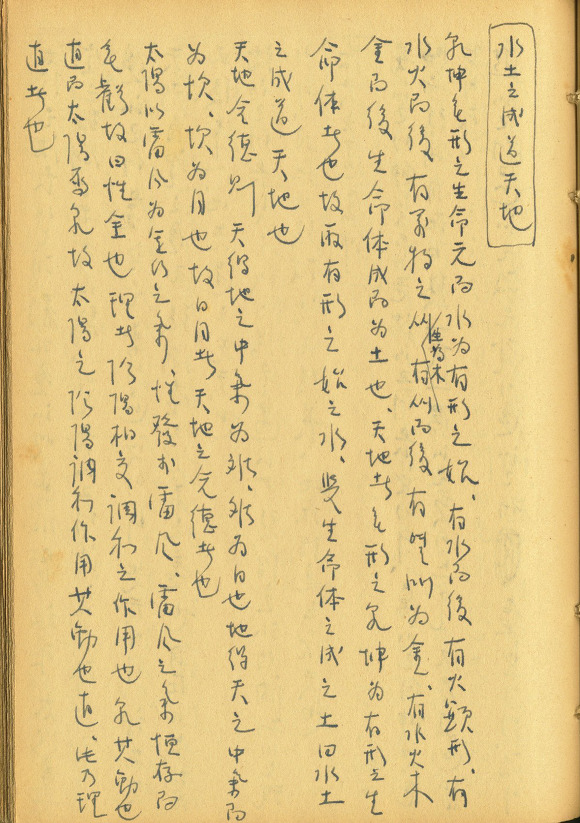 水土之成道天地
乾坤無形之生命元而水為有形之始、有水而後有火顯形、有
水火而後有万物之以性為木有以而後有質以為金、有水火木
金而後生命体成而為土也、天地者無形之乾坤為有形之生
命体者也故取有形之始之水、與生命体之成之土曰水土
之成道天地也
天地合德則天得地之中氣為離、離為日也地得天之中氣而
為坎、坎為月也故日月者天地之合德者也
太陽以雷風為金行之氣、性發於雷風、雷風之氣恒存而
無虧故曰性金也理者陰陽相交調和之作用也乾其動也
直而太陽秉乾故太陽之陰陽調和作用其動也直、此乃理
直者也